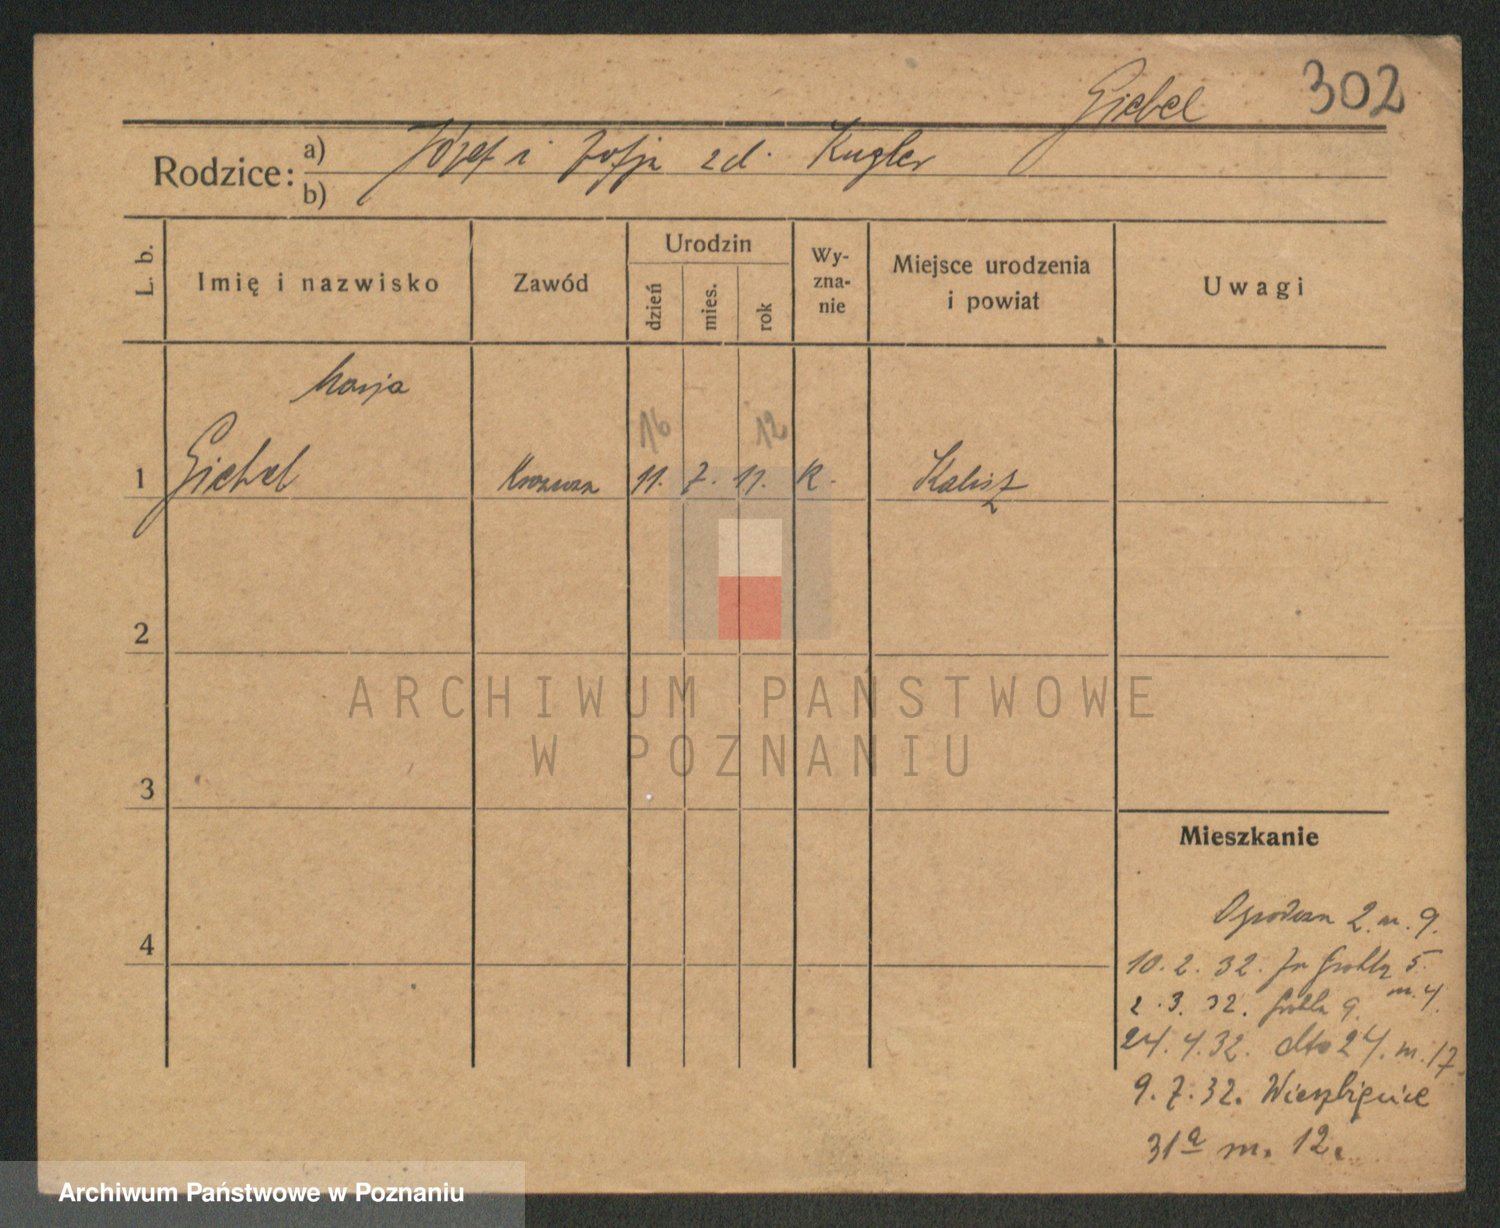 Giebel 302
Rodzice:
a) Józef i Zofja zd. Kugler
b)
L. b.
Imię i nazwisko
Zawód
Urodzin
dzień
mies.
rok
Wy-
zna-
nie
Miejsce urodzenia
i powiat
Uwagi
Marja
16 12
1 Giebel 11. 7. 11. k. Kalisz
2
ARCHIWUM PAŃSTWOWE
W POZNANIU
3
Mieszkanie
4
2 m. 9.
10. 2. 32. Grobla 5.
m. 4.
2. 3. 32. Grobla 9.
24. 4. 32. dto 24. m. 17
9. 7. 32. Wierzbięcice
31a m. 12.
Archiwum Państwowe w Poznaniu